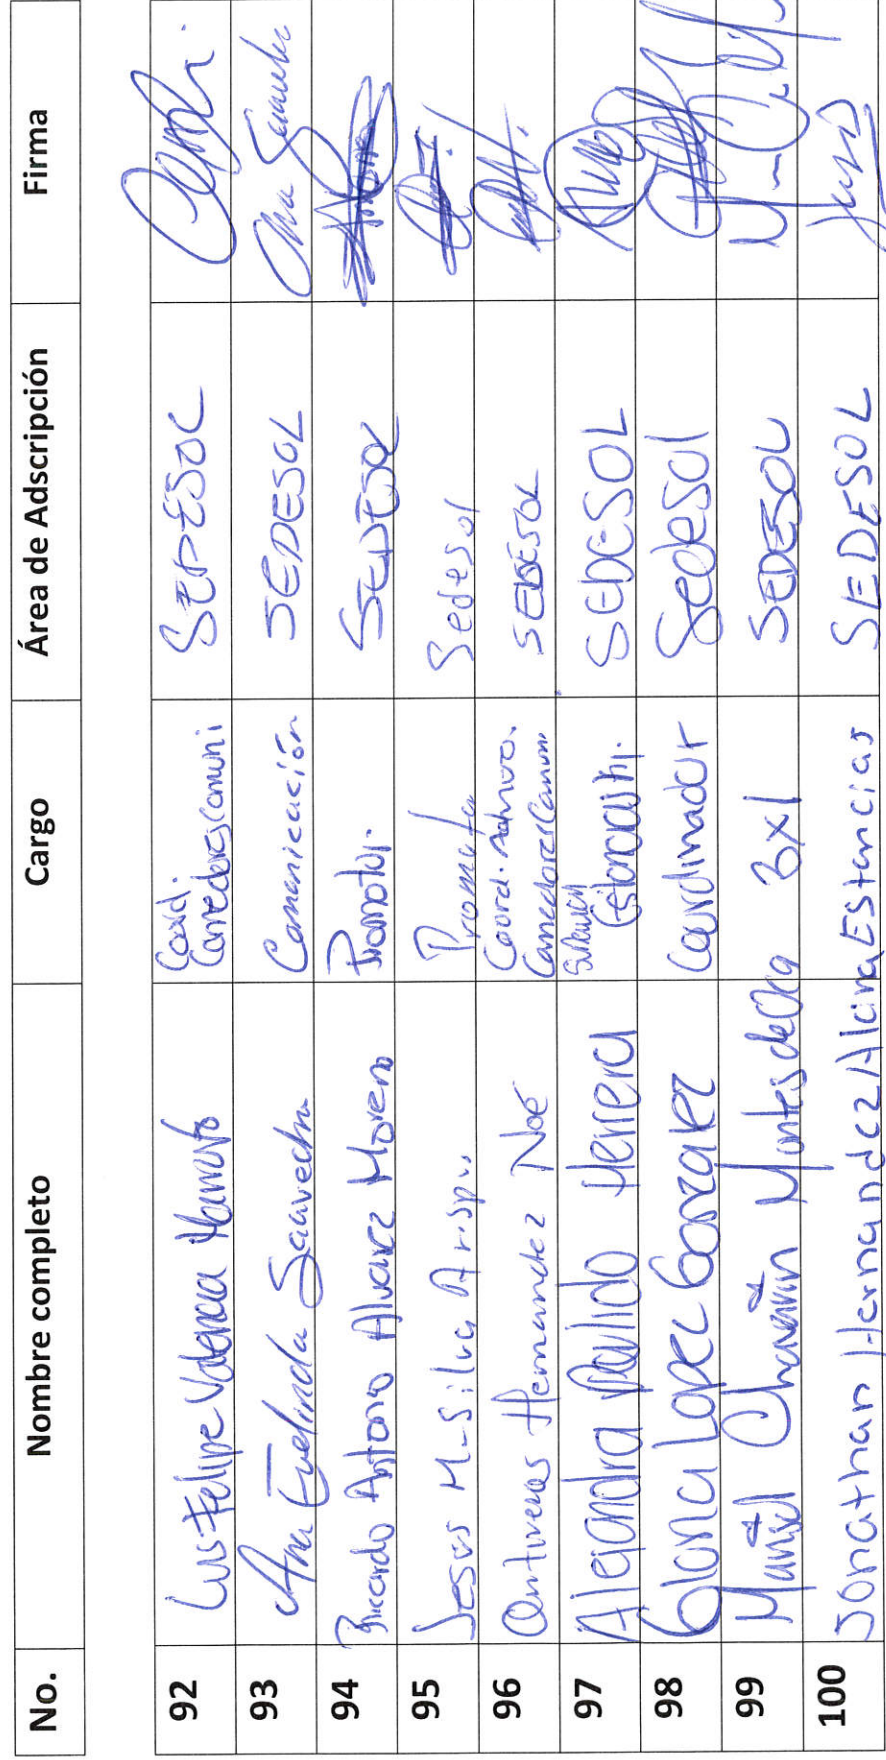 No. Nombre completo Cargo Área de Adscripción Firma
92 Luis Felipe Valencia Coord. Comedores Comuni SEDESOL
93 Ana Evelinda Saavedra Comunicación SEDESOL Ana Saavedra
94 Ricardo Antonio Alvarez Moreno Promotor. SEDESOL
95 Jesus M. Silva Promoto Sedesol
96 Hernandez Noé Coord. Admvo. Comedores Comun SEDESOL
97 Alejandra Pulido Herrera SEDESOL
98 Gloria Lopez Gonzalez Coordinador Sedesol
99 Marisol Montes de Oca 3x1 SEDESOL
100 Jonathan Hernandez Alcina Estancias SEDESOL